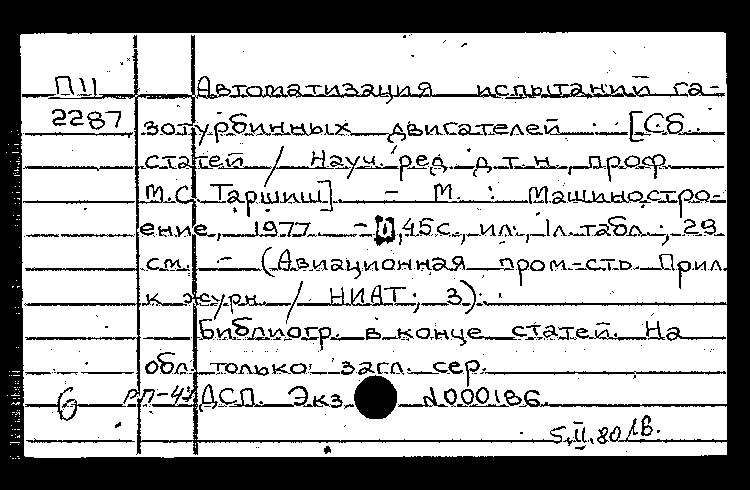 П11 Автоматизация испытаний га-
2287 зотурбинных двигателей : [Сб.
статей / Науч. ред. д.т.н., проф.
М.С. Таршиш]. - М. : Машиностро-
ение, 1977. - 45с., ил., 1л.табл.; 29
см. - (Авиационная пром-сть. Прил.
к журн. / НИАТ; 3).
Библиогр. в конце статей. На
обл. только загл. сер.
6 РП-47 ДСП. Экз. N000186.
5.II.80